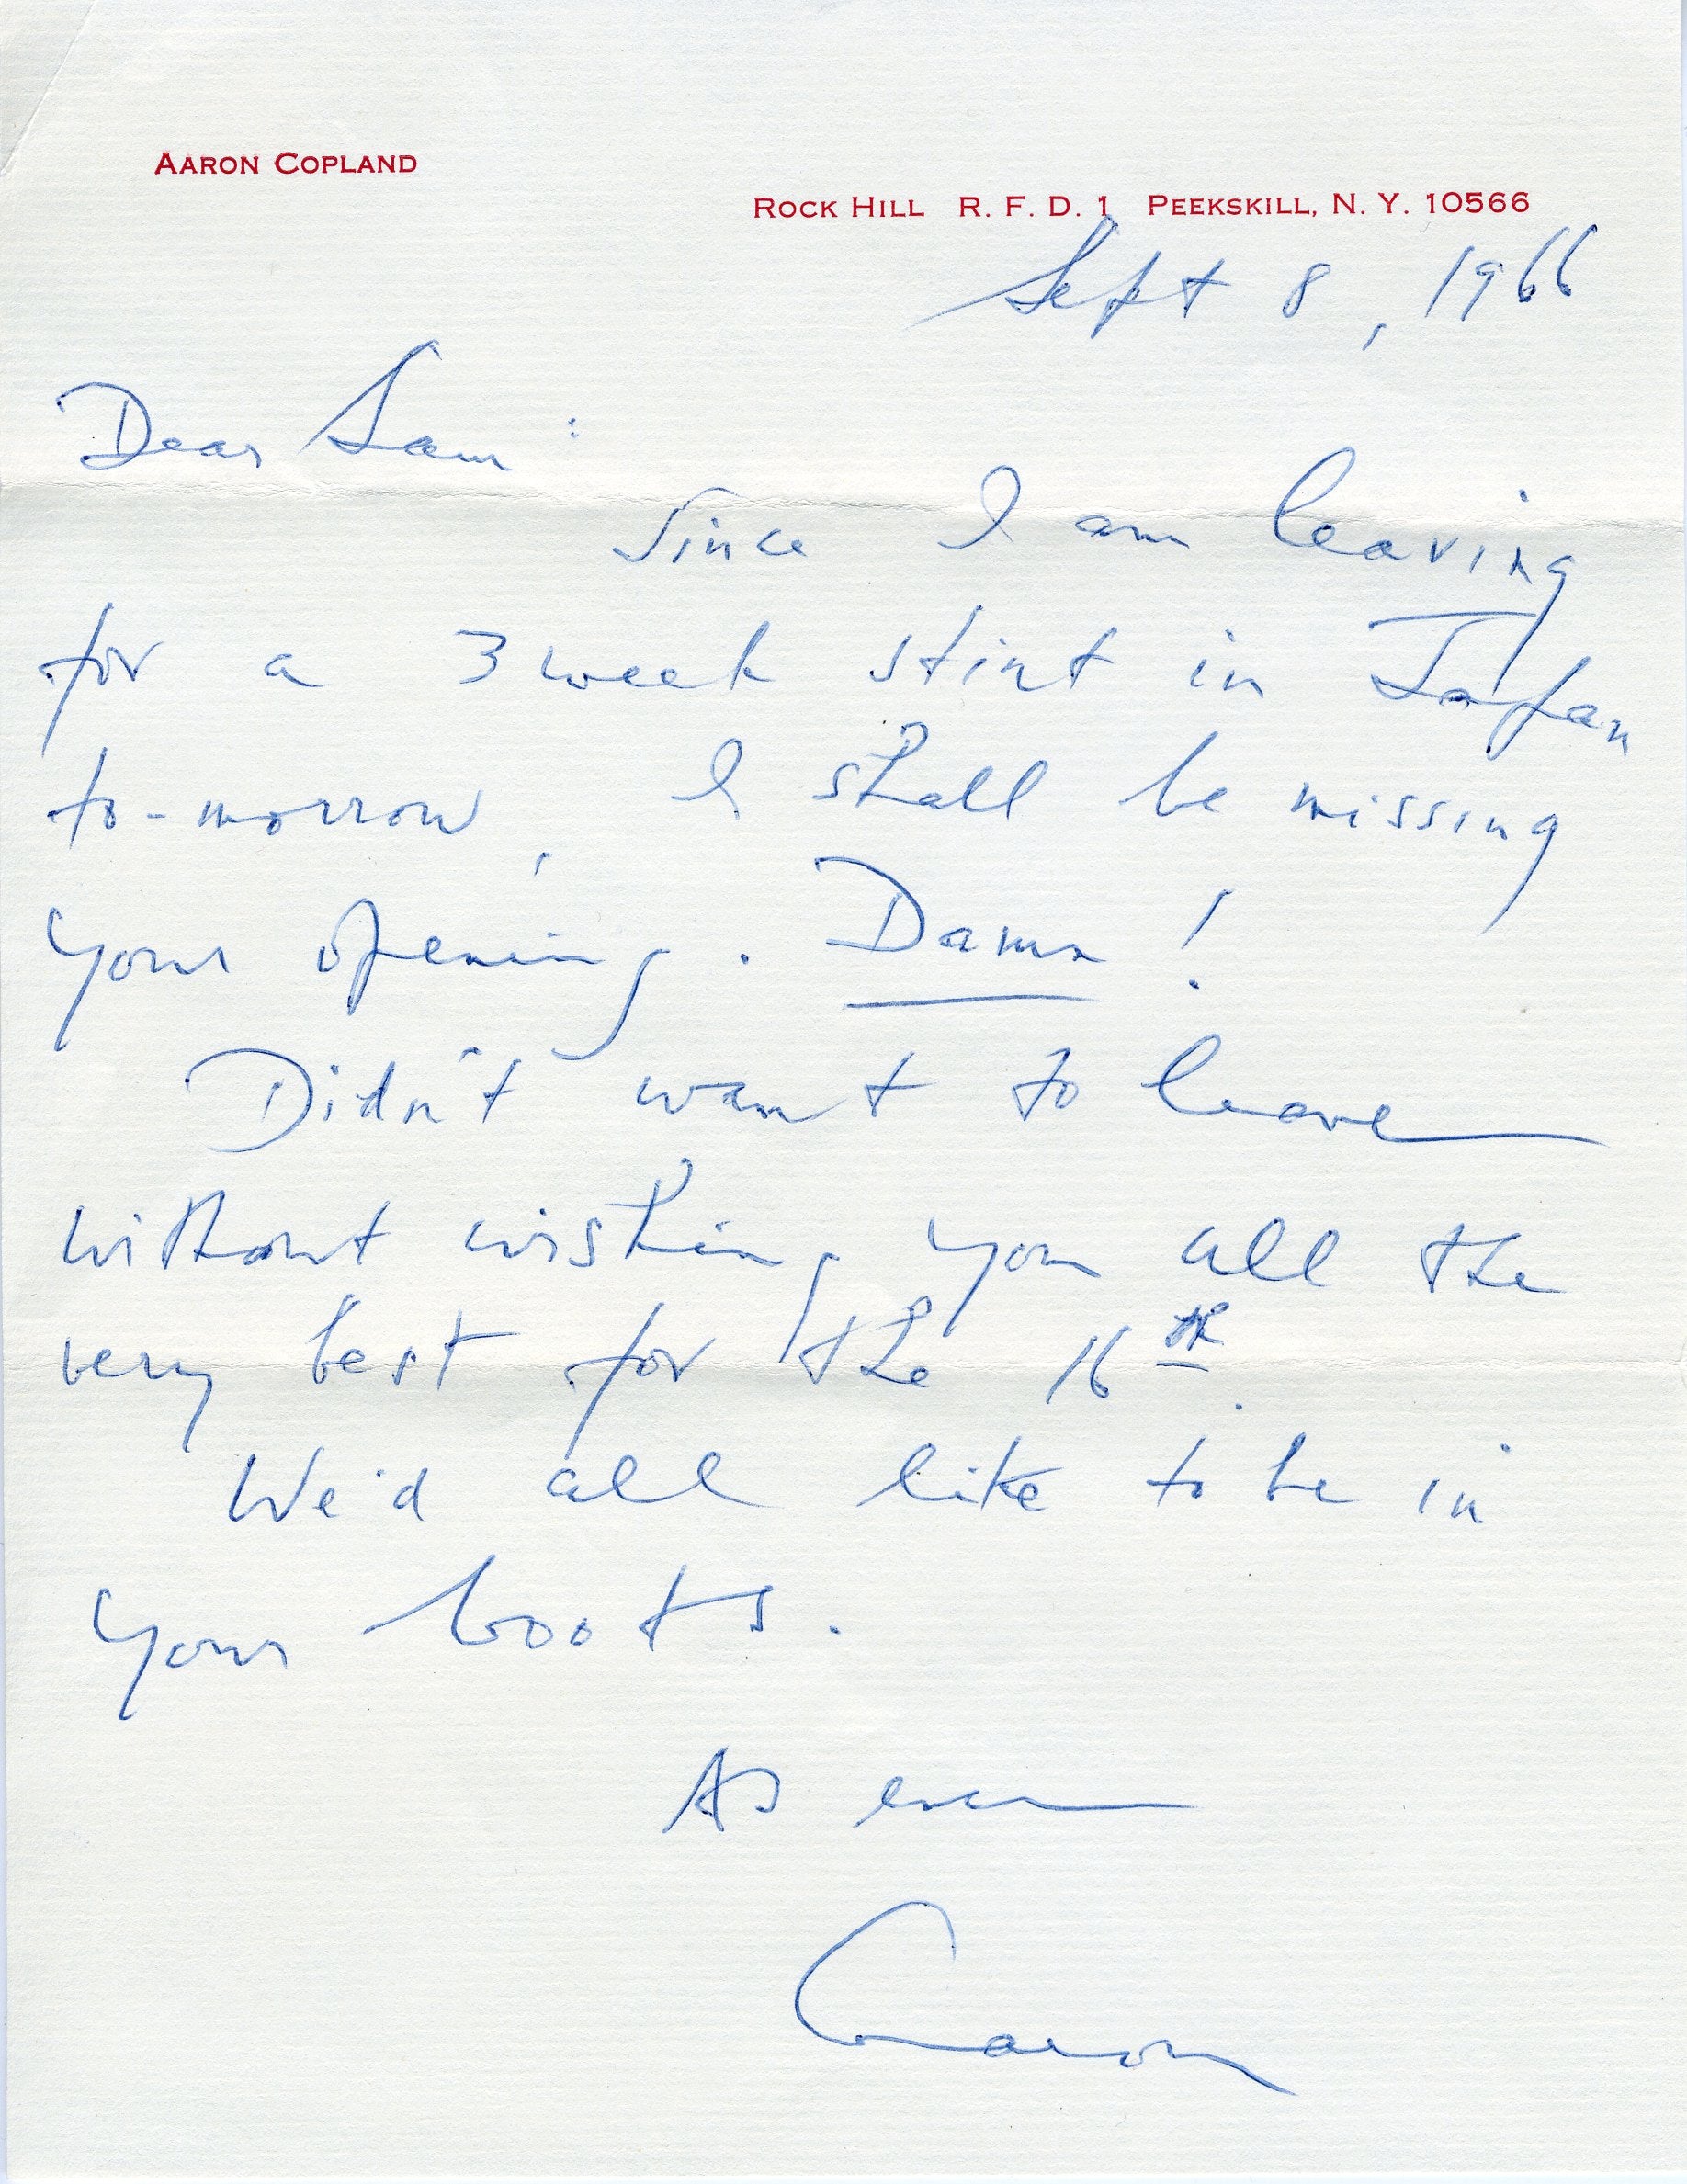 AARON COPLAND
ROCK HILL R. F. D. 1 PEEKSKILL, N. Y. 10566
Sept 8, 1966
Dear Sam:
Since I am leaving
for a 3 week stint in Japan
to-morrow, I shall be missing
your opening. Damn!
Didn't want to leave
without wishing you all the
very best for the 16th.
We'd all like to be in
your boots.
As ever
Aaron